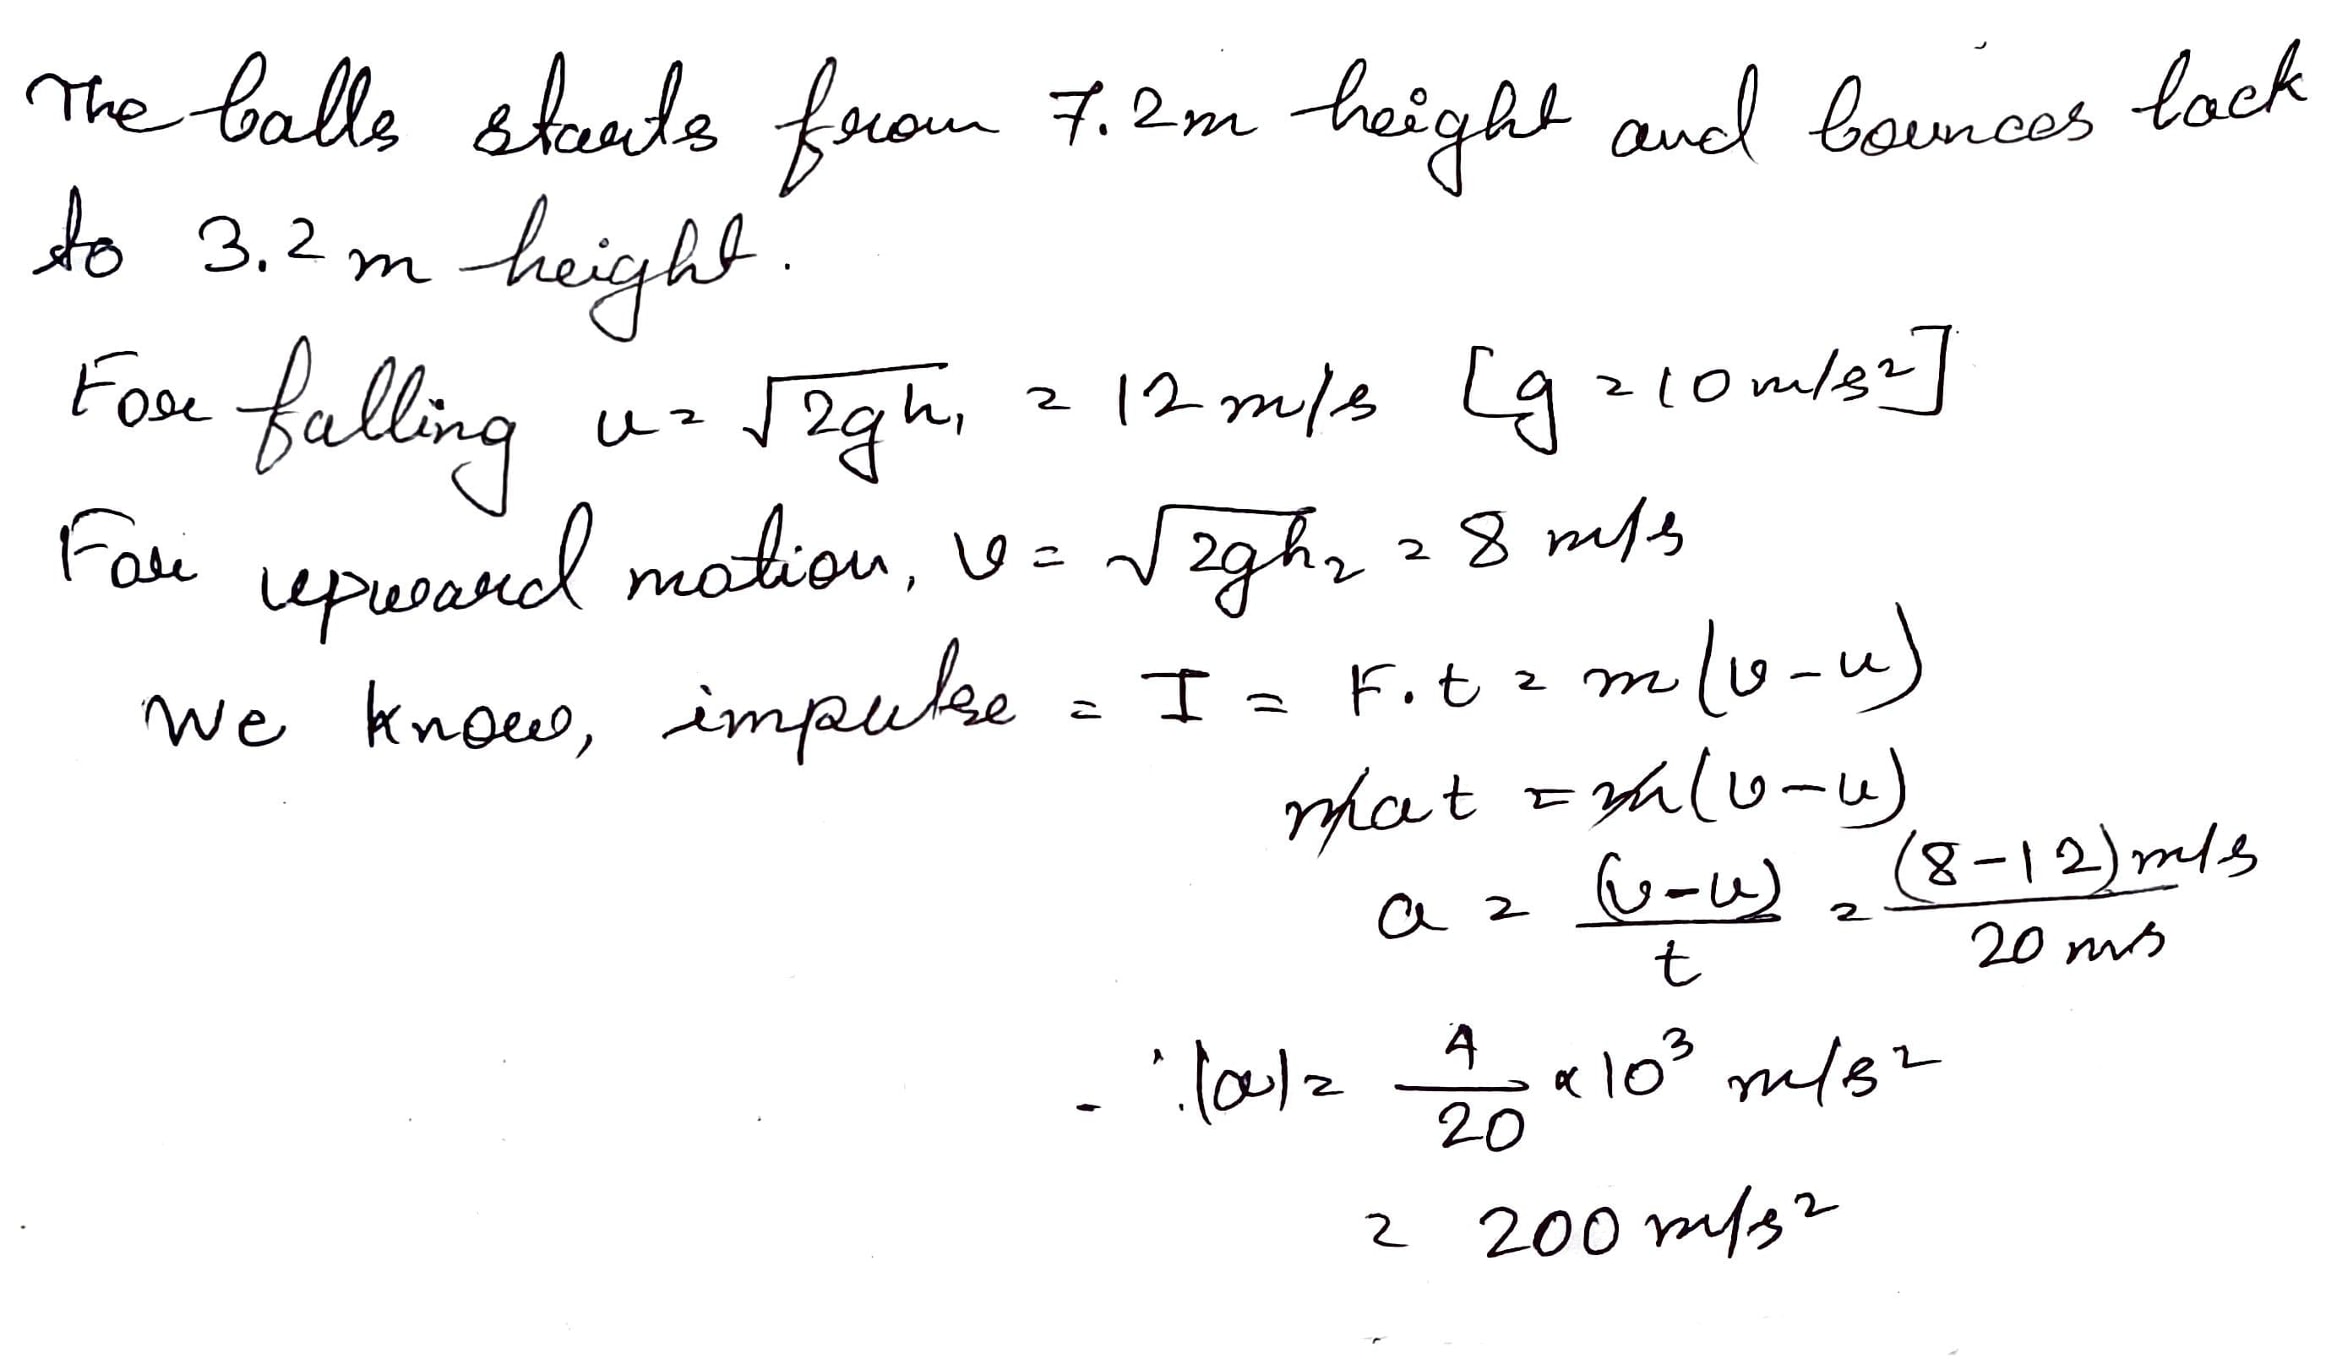 The balls starts from 7.2m height and bounces back
to 3.2 m height.
For falling u = √2gh₁ = 12 m/s [g = 10 m/s²]
For upward motion, v = √2gh₂ = 8 m/s
We know, impulse = I = F.t = m(v-u)
mat = m(v-u)
a = (v-u)/t = (8-12)m/s / 20 ms
∴ |a| = 4/20 × 10³ m/s²
= 200 m/s²